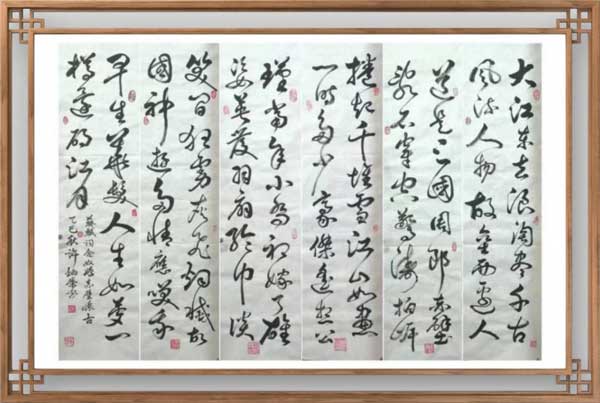 大江东去浪淘尽千古
风流人物故垒西边人
道是三國周郎赤壁
乱石穿空驚涛拍岸
捲起千堆雪江山如画
一时多少豪傑遥想公
瑾当年小乔初嫁了雄
姿英发羽扇纶巾谈
笑间狂虏灰飞烟灭故
國神遊多情應笑我
早生華髮人生如梦一
樽还酹江月
蘇軾词念奴嬌赤壁懷古
乙巳秋许